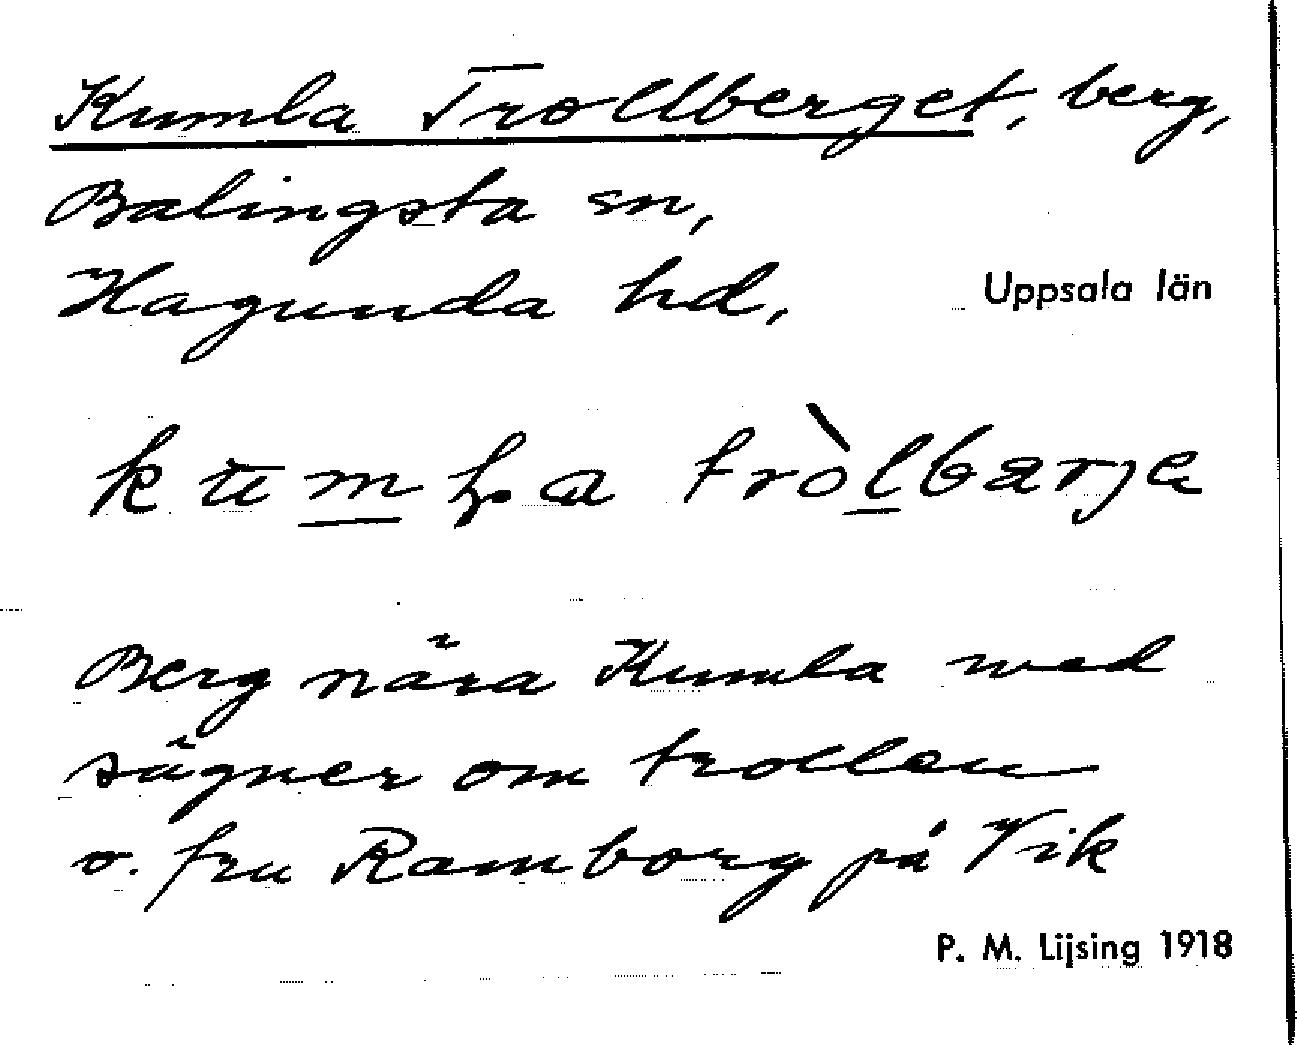 Kumla Trollberget, berg,
Balingsta sn,
Hagunda hd, Uppsala län
tròlbærja
Berg nära Kumla med
sägner om trollen
o. fru Ramborg på Vik
P. M. Lijsing 1918